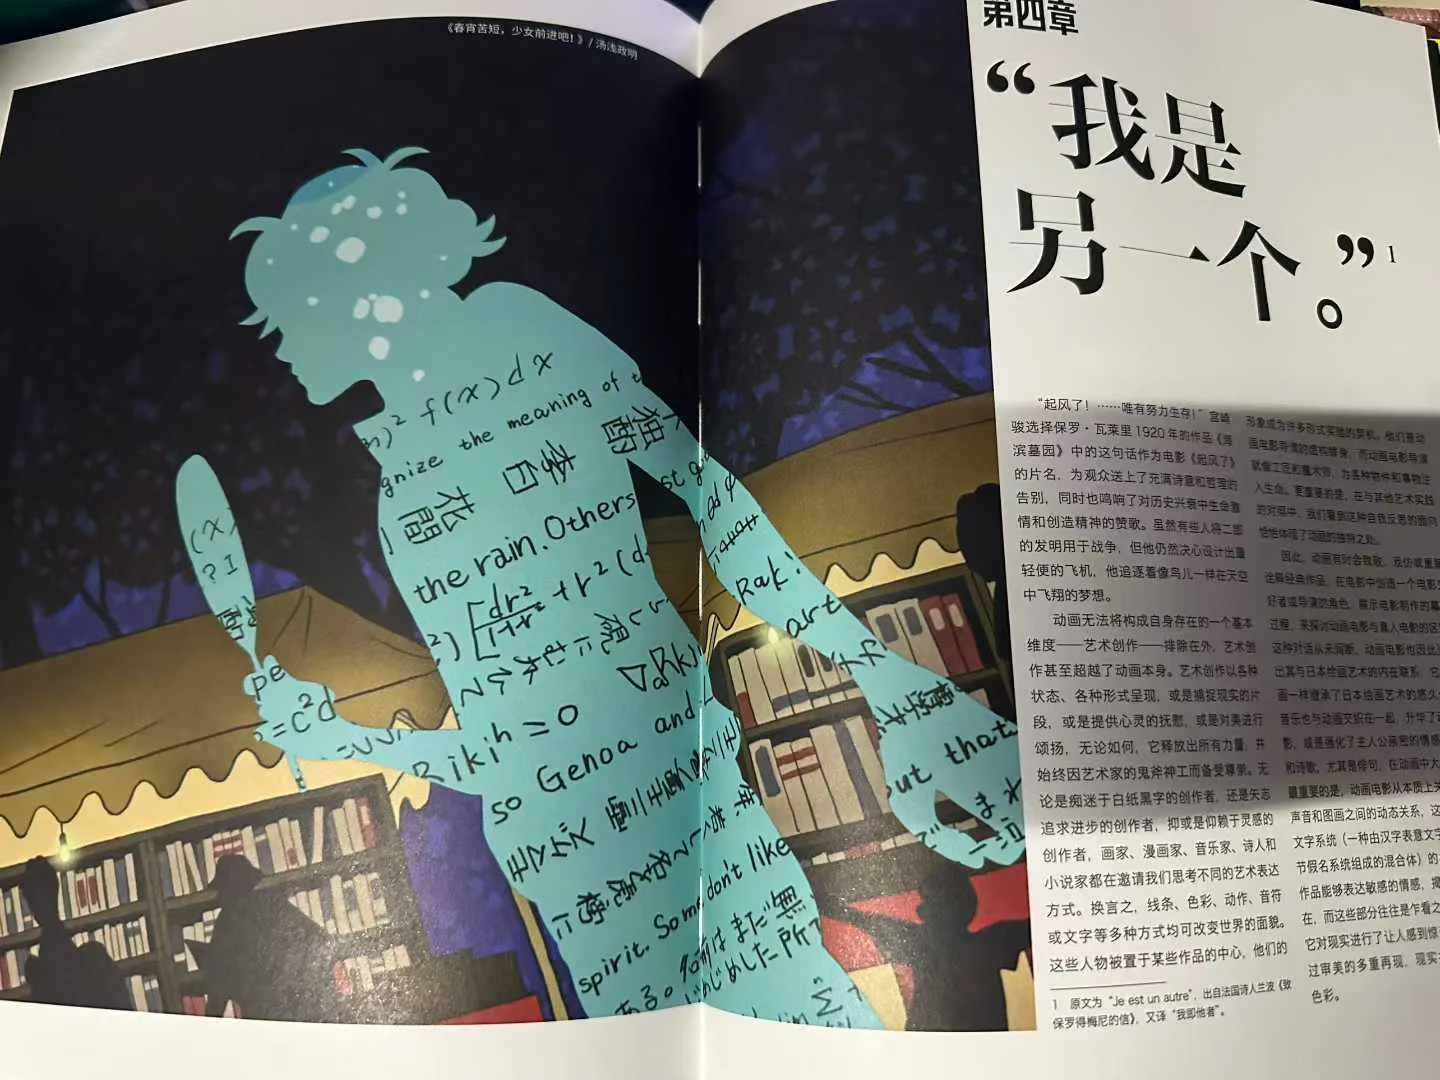 《春宵苦短，少女前进吧！》/ 汤浅政明
第四章
“我是
另一个。”1
“起风了！……唯有努力生存！”宫崎
骏选择保罗·瓦莱里1920年的作品《海
滨墓园》中的这句话作为电影《起风了》
的片名，为观众送上了充满诗意和哲理的
告别，同时也鸣响了对历史兴衰中生命激
情和创造精神的赞歌。虽然有些人将二郎
的发明用于战争，但他仍然决心设计出量
轻便的飞机，他追逐着像鸟儿一样在天空
中飞翔的梦想。
动画无法将构成自身存在的一个基本
维度——艺术创作——排除在外，艺术创
作甚至超越了动画本身。艺术创作以各种
状态、各种形式呈现，或是捕捉现实的片
段，或是提供心灵的抚慰，或是对美进行
颂扬，无论如何，它释放出所有力量，并
始终因艺术家的鬼斧神工而备受尊崇。无
论是痴迷于白纸黑字的创作者，还是矢志
追求进步的创作者，抑或是仰赖于灵感的
创作者，画家、漫画家、音乐家、诗人和
小说家都在邀请我们思考不同的艺术表达
方式。换言之，线条、色彩、动作、音符
或文字等多种方式均可改变世界的面貌。
这些人物被置于某些作品的中心，他们的
形象成为许多形式实验的契机。他们是动
画电影导演的虚构替身，而动画电影导演
就像工匠和魔术师，为各种物件和事物注
入生命。更重要的是，在与其他艺术实践
的对照中，我们看到这种自我反思的面向
恰恰体现了动画的独特之处。
因此，动画有时会致敬、戏仿或重新
诠释经典作品，在电影中创造一个电影
好者或导演的角色，展示电影制作的幕
过程，来探讨动画电影与真人电影的区
这种对话从未间断，动画电影也因此
出其与日本绘画艺术的内在联系，它
画一样继承了日本绘画艺术的悠久
音乐也与动画交织在一起，升华了
影，或是强化了主人公亲密的情感
和诗歌，尤其是俳句，在动画中大
最重要的是，动画电影从本质上关
声音和图画之间的动态关系，这
文字系统（一种由汉字表意文字
节假名系统组成的混合体）的
作品能够表达敏感的情感，揭
在，而这些部分往往是乍看之
它对现实进行了让人感到惊
过审美的多重再现，现实
色彩。
1 原文为“Je est un autre”，出自法国诗人兰波《致
保罗得梅尼的信》，又译“我即他者”。
² f(x)dx
gnize the meaning of
独酌
李白
花間
the rain. Others
dr²
+r²(d
Rak!
art
(x)
?I
pe
=c²d
Rikiʰ=0
so Genoa and
but that
spirit. Some don't like